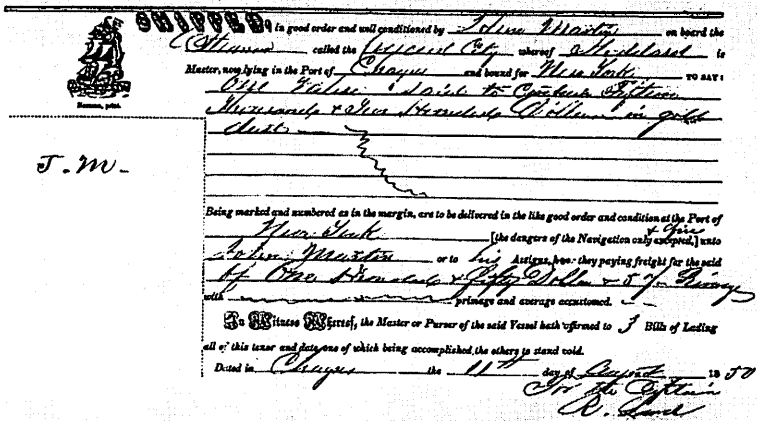 SHIPPED, in good order and well conditioned by John Martin on board the
Steamer called the Crescent City whereof Stoddard is
Master, now lying in the Port of Chagres and bound for New York TO SAY:
One Valise said to Contain Fifteen
Thousand & Four Hundred Dollars in gold
dust
J. M.
Being marked and numbered as in the margin, are to be delivered in the like good order and condition at the Port of
New York [the dangers of the Navigation & fire only excepted,] unto
John Martin or to his Assigns, he or they paying freight for the said
of One Hundred & fifty Dollars & 5 %
with primage and average accustomed.
In Witness Whereof, the Master or Purser of the said Vessel hath affirmed to 3 Bills of Lading
all of this tenor and date, one of which being accomplished, the others to stand void.
Dated in Chagres the 11th day of August 1850
For the Captain
R.